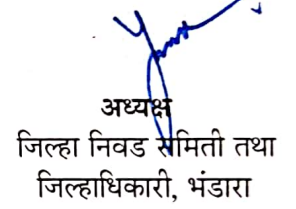 अध्यक्ष
जिल्हा निवड समिती तथा
जिल्हाधिकारी, भंडारा